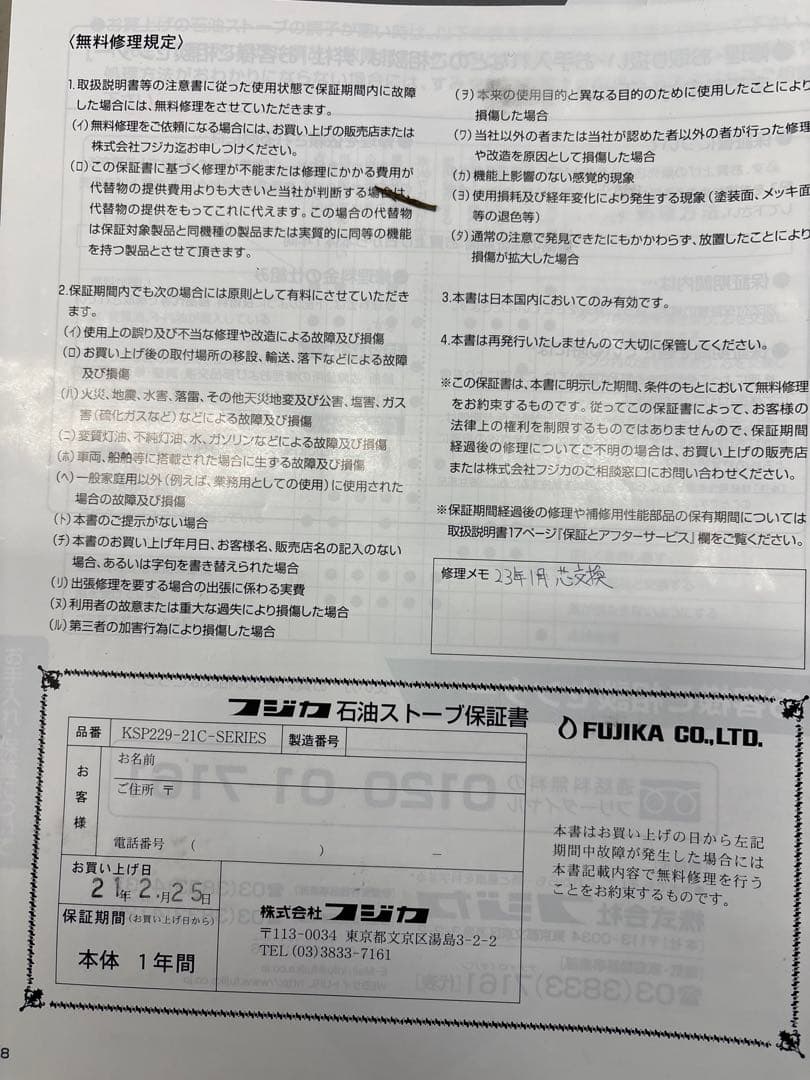 〈無料修理規定〉
1.取扱説明書等の注意書に従った使用状態で保証期間内に故障
した場合には、無料修理をさせていただきます。
(イ)無料修理をご依頼になる場合には、お買い上げの販売店または
株式会社フジカ迄お申しつけください。
(ロ)この保証書に基づく修理が不能または修理にかかる費用が
代替物の提供費用よりも大きいと当社が判断する場合は、
代替物の提供をもってこれに代えます。この場合の代替物
は保証対象製品と同機種の製品または実質的に同等の機能
を持つ製品とさせて頂きます。
2.保証期間内でも次の場合には原則として有料にさせていただき
ます。
(イ)使用上の誤り及び不当な修理や改造による故障及び損傷
(ロ)お買い上げ後の取付場所の移設、輸送、落下などによる故障
及び損傷
(ハ)火災、地震、水害、落雷、その他天災地変及び公害、塩害、ガス
害(硫化ガスなど)などによる故障及び損傷
(ニ)変質灯油、不純灯油、水、ガソリンなどによる故障及び損傷
(ホ)車両、船舶等に搭載された場合に生ずる故障及び損傷
(ヘ)一般家庭用以外(例えば、業務用としての使用)に使用された
場合の故障及び損傷
(ト)本書のご提示がない場合
(チ)本書のお買い上げ年月日、お客様名、販売店名の記入のない
場合、あるいは字句を書き替えられた場合
(リ)出張修理を要する場合の出張に係わる実費
(ヌ)利用者の故意または重大な過失により損傷した場合
(ル)第三者の加害行為により損傷した場合
(ヲ)本来の使用目的と異なる目的のために使用したことにより
損傷した場合
(ワ)当社以外の者または当社が認めた者以外の者が行った修理
や改造を原因として損傷した場合
(カ)機能上影響のない感覚的現象
(ヨ)使用損耗及び経年変化により発生する現象(塗装面、メッキ面
等の退色等)
(タ)通常の注意で発見できたにもかかわらず、放置したことにより
損傷が拡大した場合
3.本書は日本国内においてのみ有効です。
4.本書は再発行いたしませんので大切に保管してください。
※この保証書は、本書に明示した期間、条件のもとにおいて無料修理
をお約束するものです。従ってこの保証書によって、お客様の
法律上の権利を制限するものではありませんので、保証期間
経過後の修理についてご不明の場合は、お買い上げの販売店
または株式会社フジカのご相談窓口にお問い合わせください。
※保証期間経過後の修理や補修用性能部品の保有期間については
取扱説明書17ページ『保証とアフターサービス』欄をご覧ください。
修理メモ 23年1月 芯交換
フジカ 石油ストーブ保証書
FUJIKA CO.,LTD.
品番 KSP229-21C-SERIES 製造番号
お客様
お名前
ご住所 〒
電話番号 ( ) －
お買い上げ日
21年2月25日
保証期間(お買い上げ日から)
本体 1年間
株式会社 フジカ
〒113-0034 東京都文京区湯島3-2-2
TEL (03)3833-7161
本書はお買い上げの日から左記
期間中故障が発生した場合には
本書記載内容で無料修理を行う
ことをお約束するものです。
8